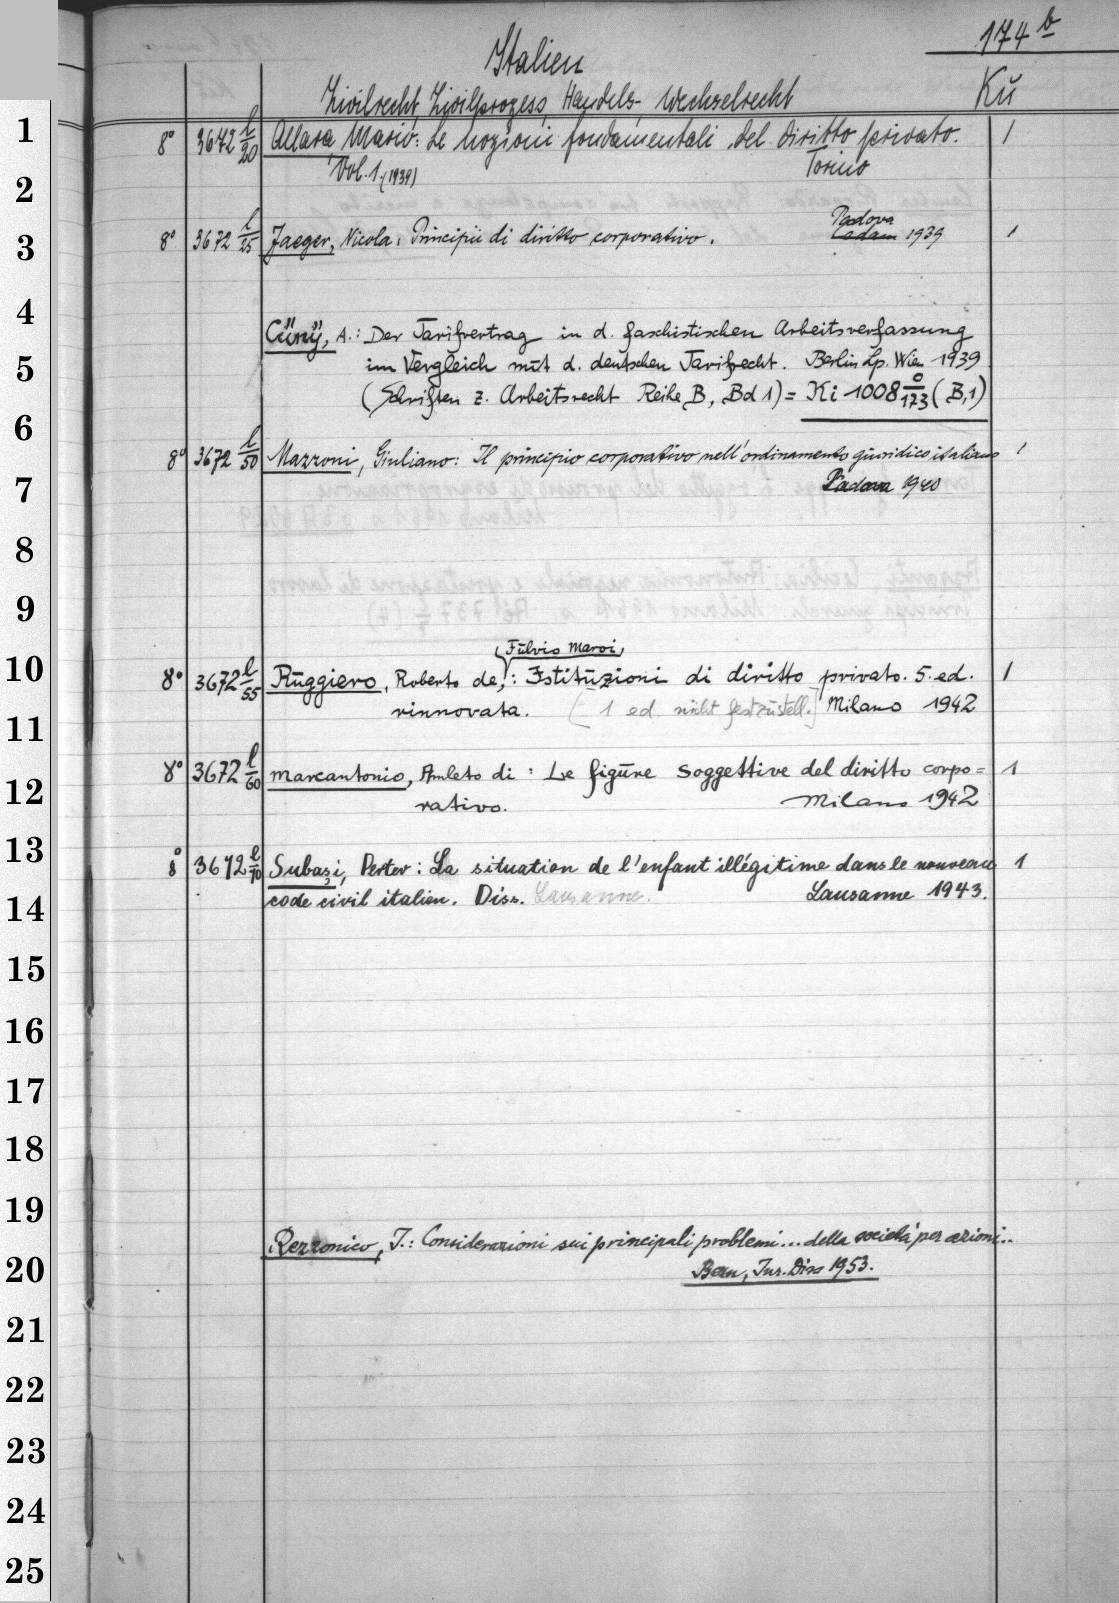 174 b
Italien
Zivilrecht, Zivilprozess, Handels- Wechselrecht
Kü
1
8° 3672 l/20 Allara, Mario: Le nozioni fondamentali del diritto privato. 1
Vol. 1 (1939) Torino
2
Padova
3
8° 3672 l/25 Jaeger, Nicola, Principii di diritto corporativo. Cadam 1939 1
4
Cüny, A.: Der Tarifvertrag in d. faschistischen Arbeitsverfassung
5
im Vergleich mit d. deutschen Tarifrecht. Berlin Lp. Wien 1939
(Schriften z. Arbeitsrecht Reihe B, Bd 1) = Ki 1008 o/173 (B,1)
6
8° 3672 l/50 Mazzoni, Giuliano: Il principio corporativo nell'ordinamento giuridico italiano 1
7
Padova 1940
8
9
Fulvio Maroi
10
8° 3672 l/55 Ruggiero, Roberto de, : Istituzioni di diritto privato. 5. ed. 1
rinnovata. [1 ed. nicht festzustell.] Milano 1942
11
8° 3672 l/60 Marcantonio, Amleto di: Le figure soggettive del diritto corpo= 1
12
rativo. Milano 1942
13
8° 3672 l/70 Subaşi, Perter: La situation de l'enfant illégitime dans le nouveau 1
code civil italien. Diss. Lausanne. Lausanne 1943.
14
15
16
17
18
19
Rezzonico, T.: Considerazioni sui principali problemi... della società per azioni..
20
Bern, Jur. Diss 1953.
21
22
23
24
25